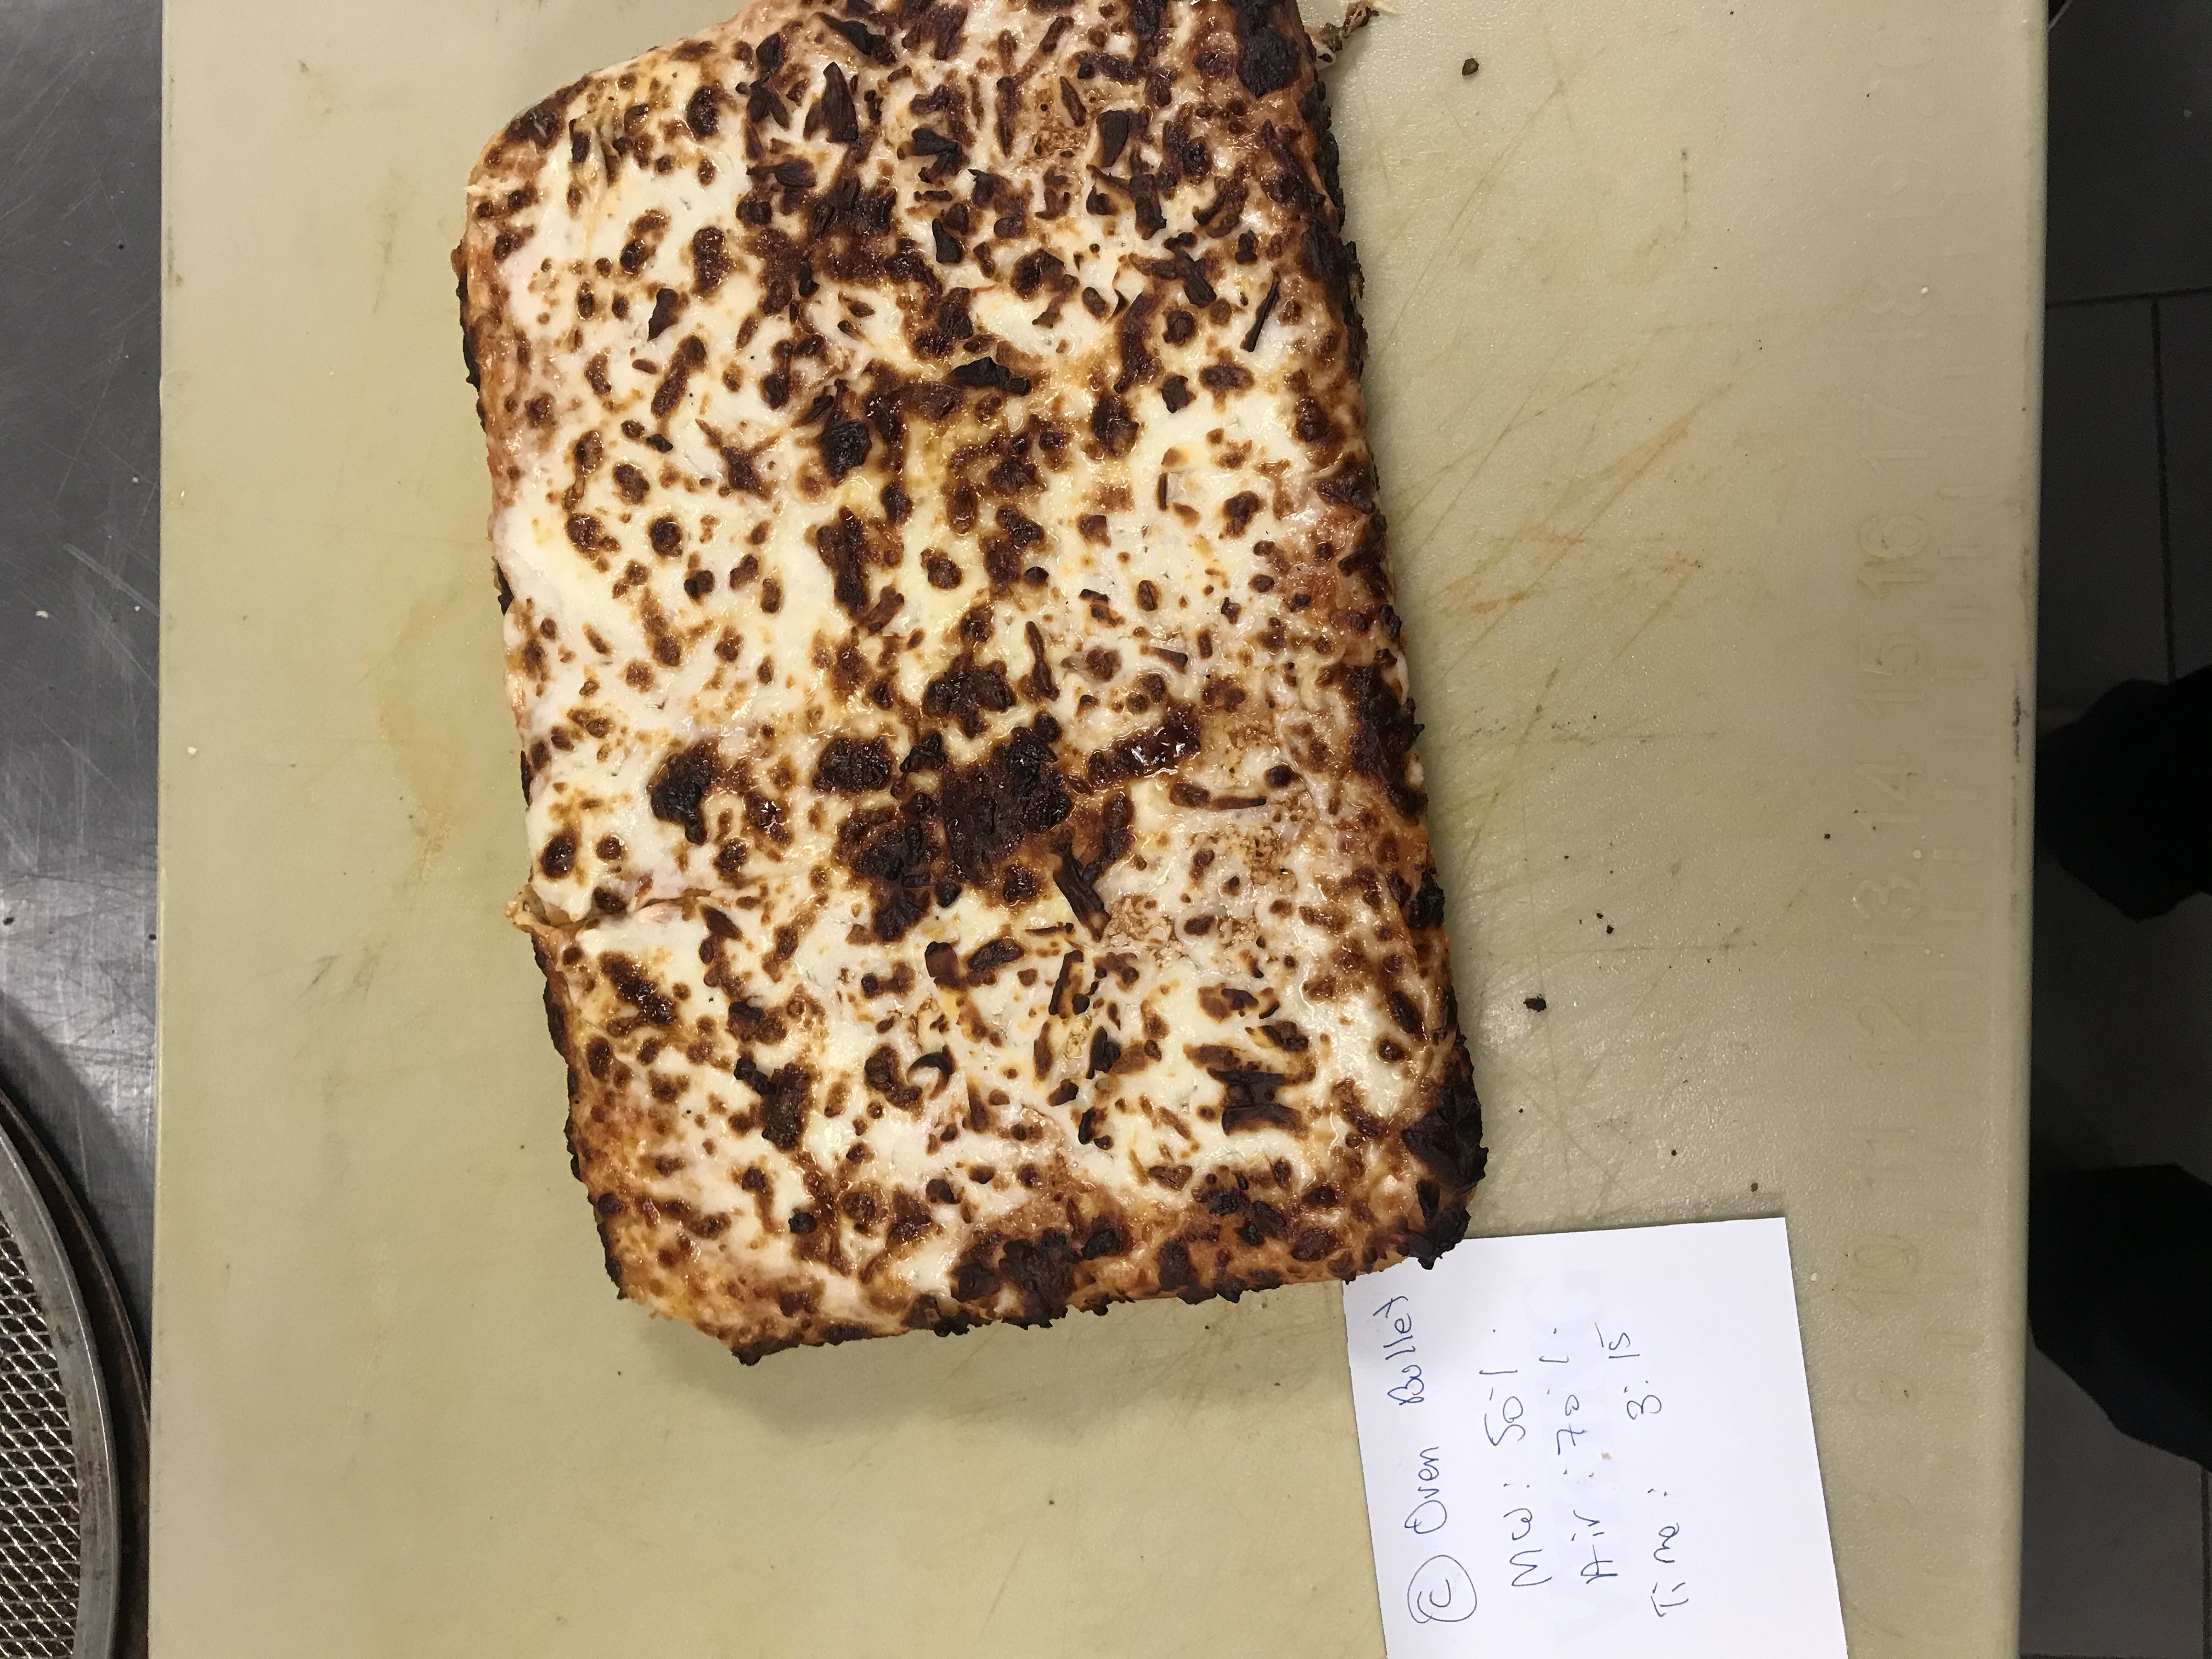 Ⓒ Oven Bullet
MW: 50%.
Air: 70%.
Time: 3:15
7 8 9 10 11 12 13 14 15 16 17 18 19 20